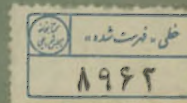 خطی - فهرست شده -
۸۹۶۲